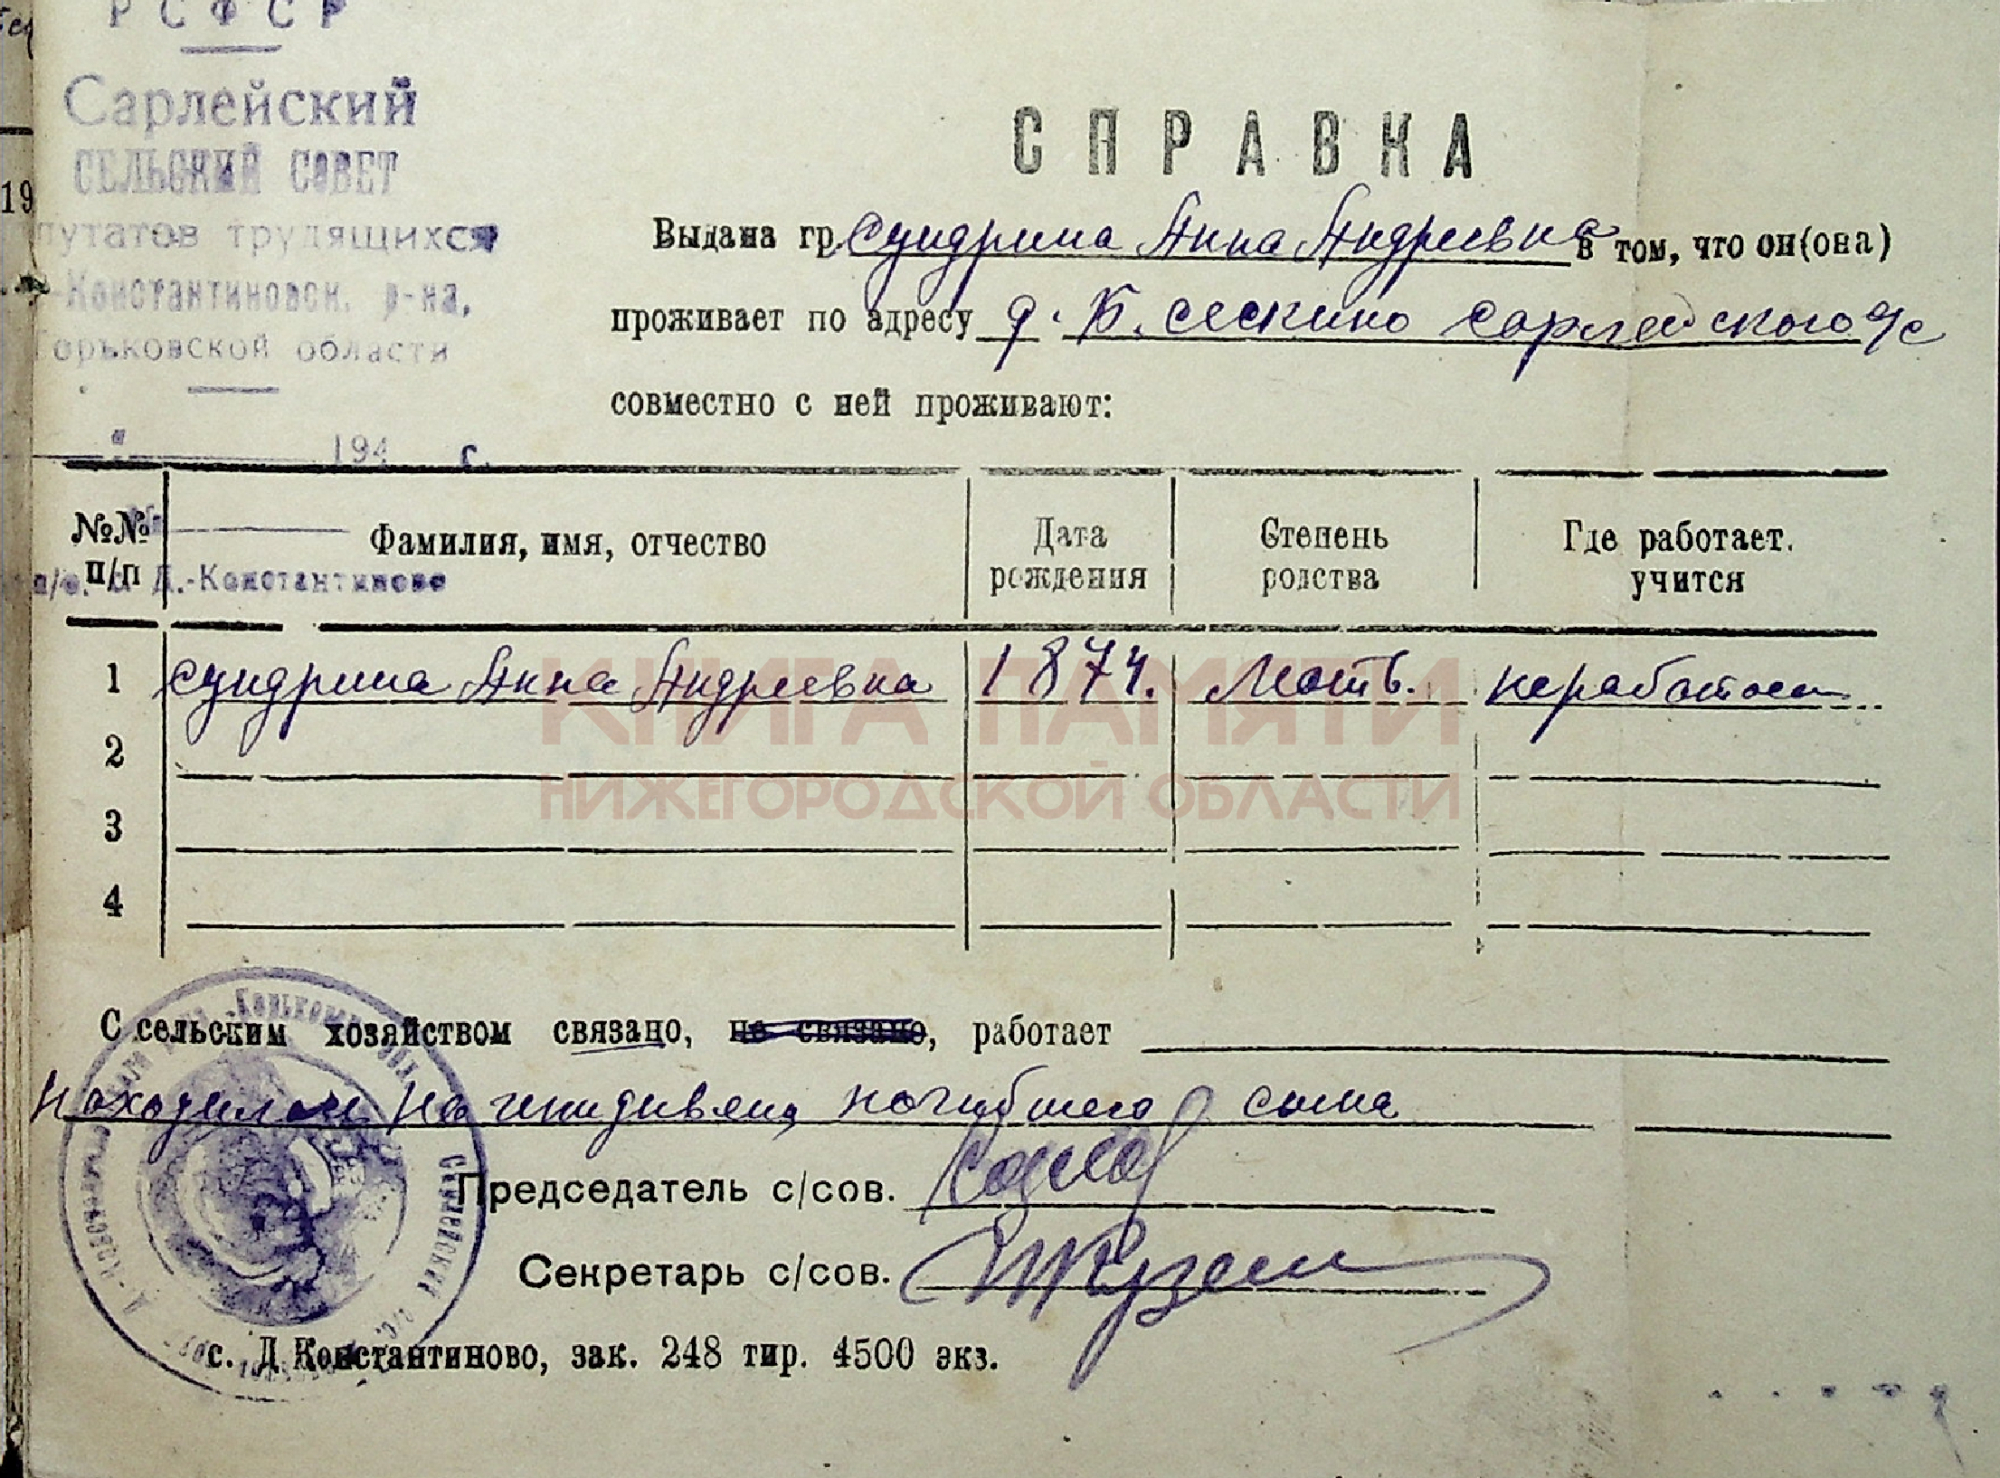 РСФСР
Сарлейский
СЕЛЬСКИЙ СОВЕТ
путатов трудящихся
-Константиновск. р-на,
орьковской области
194 г.
п/о. Д.-Константиново
19
СПРАВКА
Выдана гр. Сундрина Анна Андреевна в том, что он(она)
проживает по адресу д. Б. Сескино Сарлейского с/с
совместно с ней проживают:
№№ п/п Фамилия, имя, отчество Дата рождения Степень родства Где работает. учится
1 Сундрина Анна Андреевна 1874. Мать. не работает
2
3
4
КНИГА ПАМЯТИ
НИЖЕГОРОДСКОЙ ОБЛАСТИ
С сельским хозяйством связано, не связано, работает
находилась на иждивении погибшего сына
Председатель с/сов.
Секретарь с/сов.
с. Д Константиново, зак. 248 тир. 4500 экз.